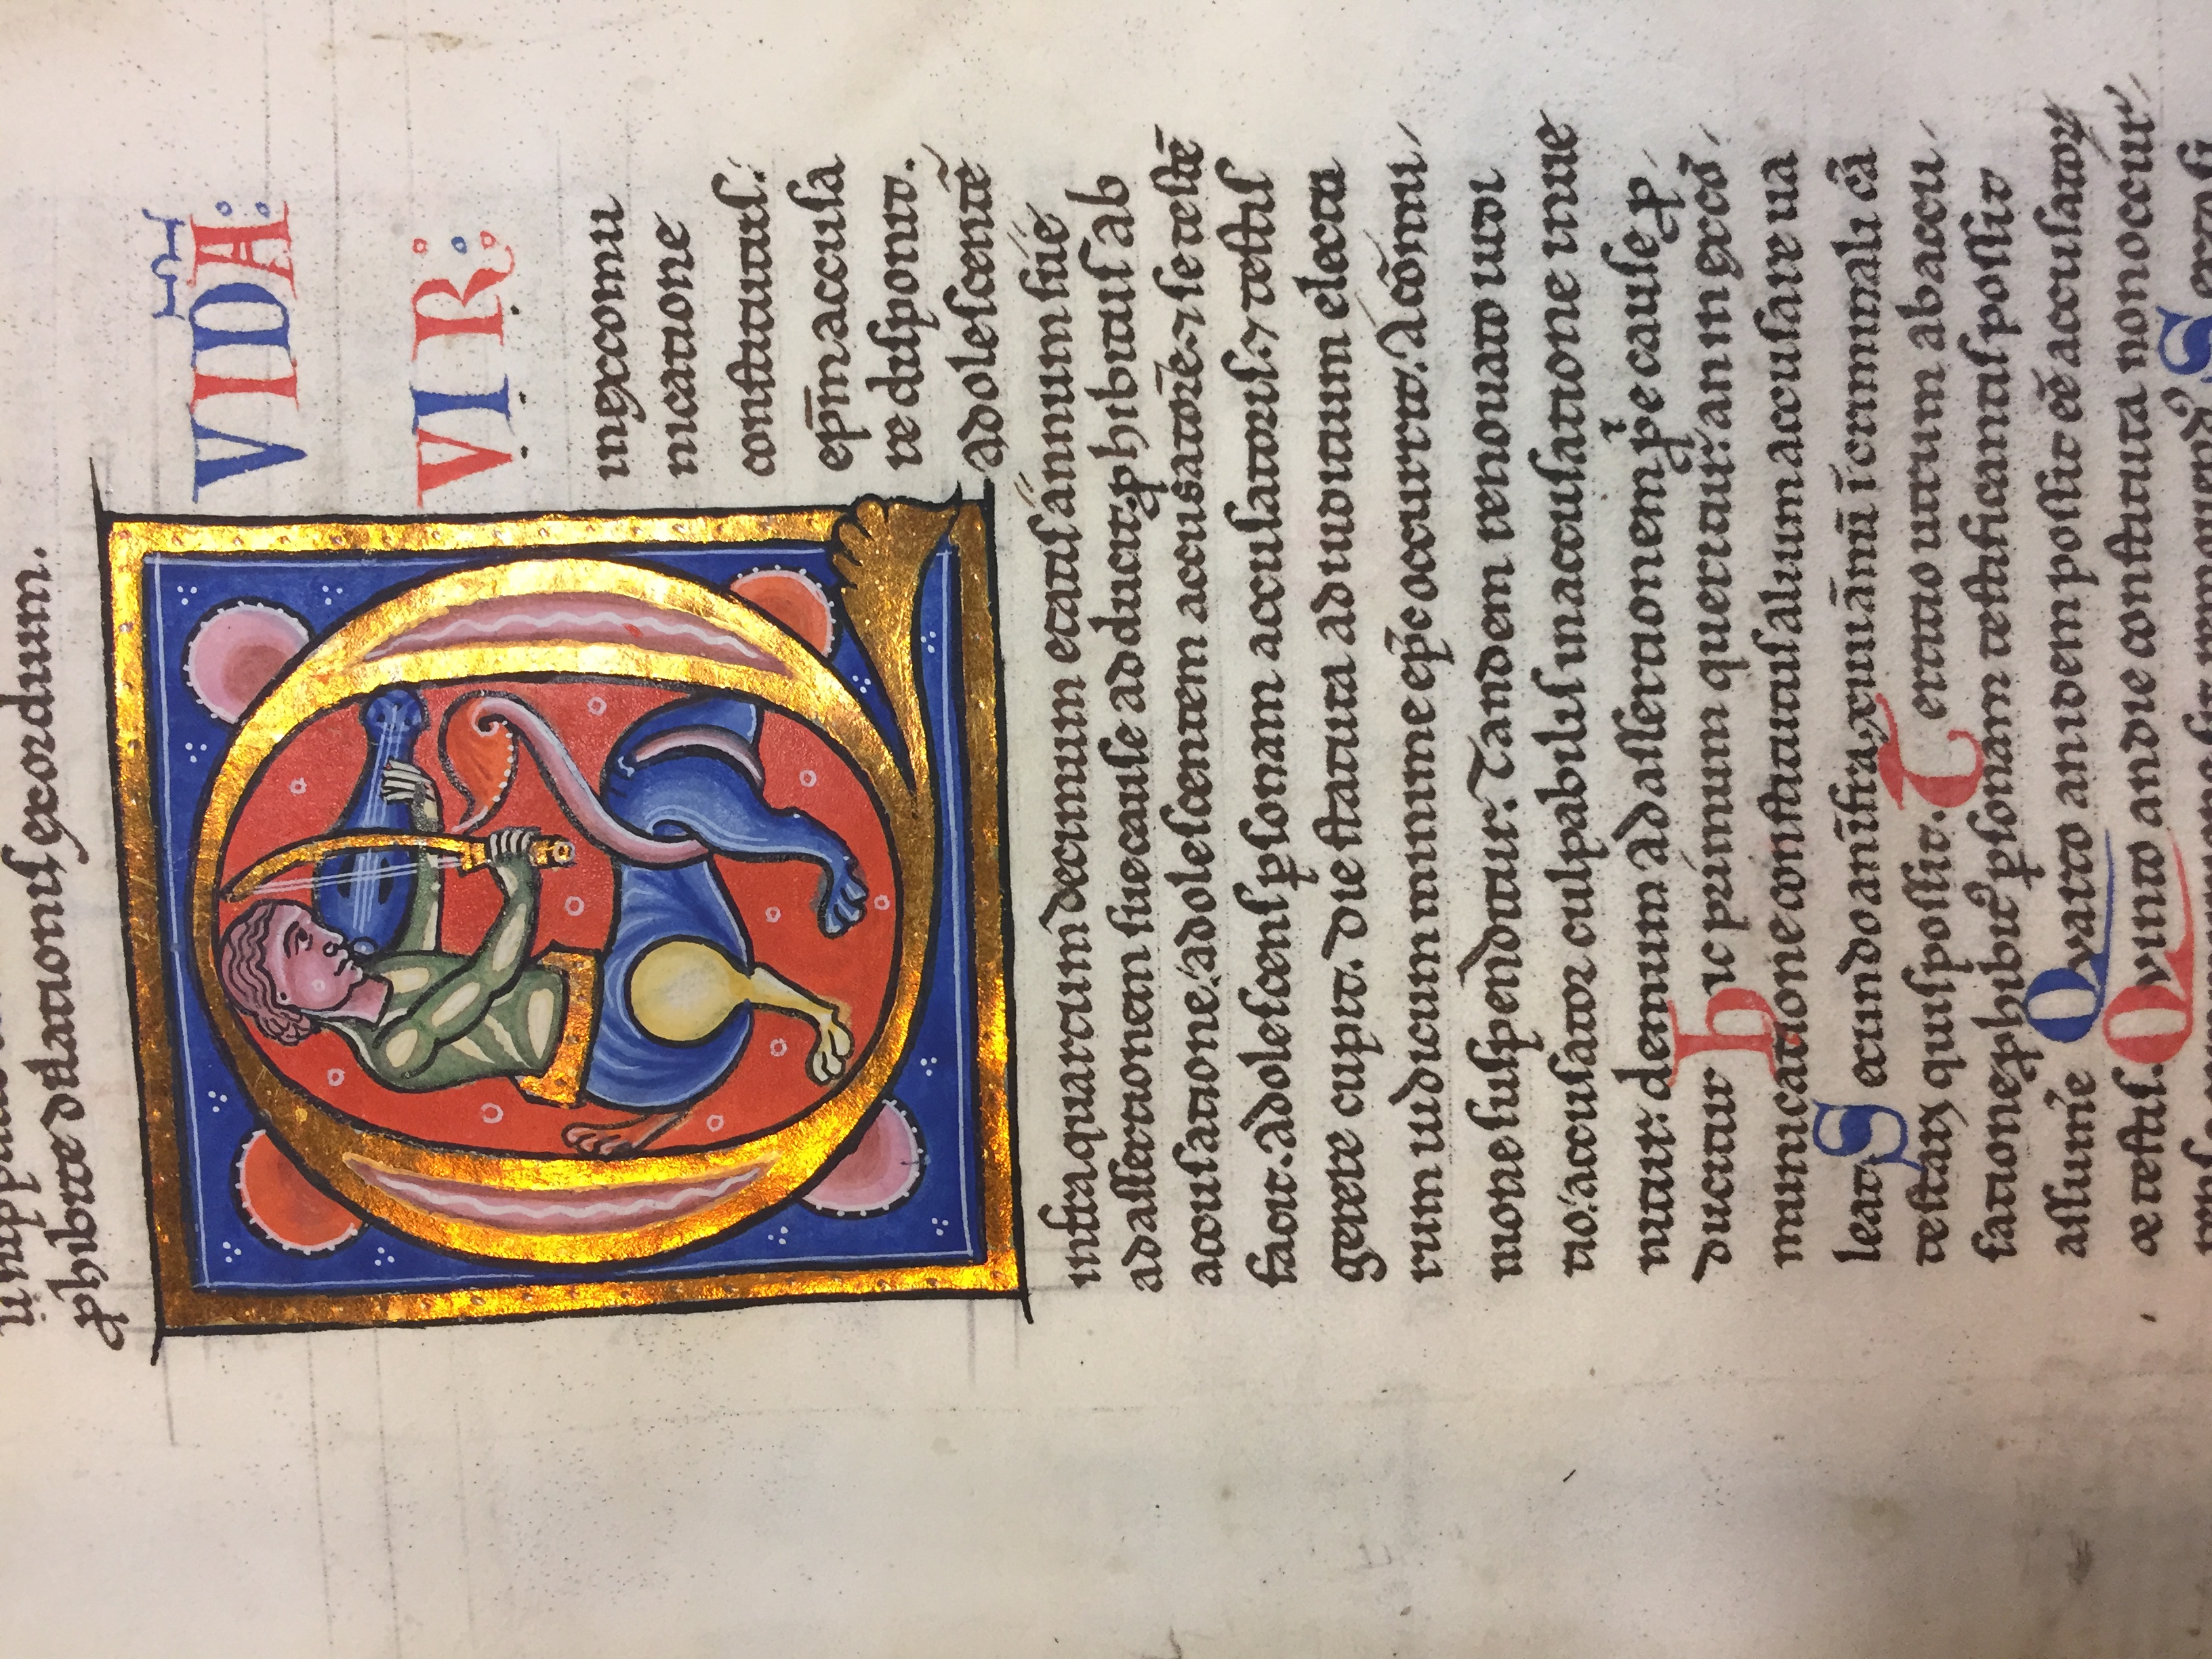 ꝓhibite dilationis exordium.
QVIDĀ:
VIR:
inexcomu
nicatione
constitutus:
ep̄m accusa
re disponit.
adolescentē
infra quartum decimum etatis annum sue
ad assertionem sue cause adducit ꝓhibitus ab
accusatione: adolescentem accusatorē ⁊ se testē
facit. adolescens ꝑsonam accusatoris ⁊ testis
gerere cupit. die statuta ad uoitaum electa
rum iudicum minime ep̄c occurrit. A cōmu
nione suspenditur. Tandem renouato iudi
tio: accusator culpabilis in accusatione inue
nitur: demum ad assertionem p̄pe cause ꝑ
ducitur hic primum queritur: an in excō
municatione constitutus alium accusare ua
leat. Secundo an infra xiiii ānū ī criminali cā
testari quis possit. Tertio utrum ab accu
satione ꝓhibitꝰ ꝑsonam testificantis possit
assumere Qvarto an idem possit eē accusatoꝝ
& testis. Qvinto an die constituta non occur